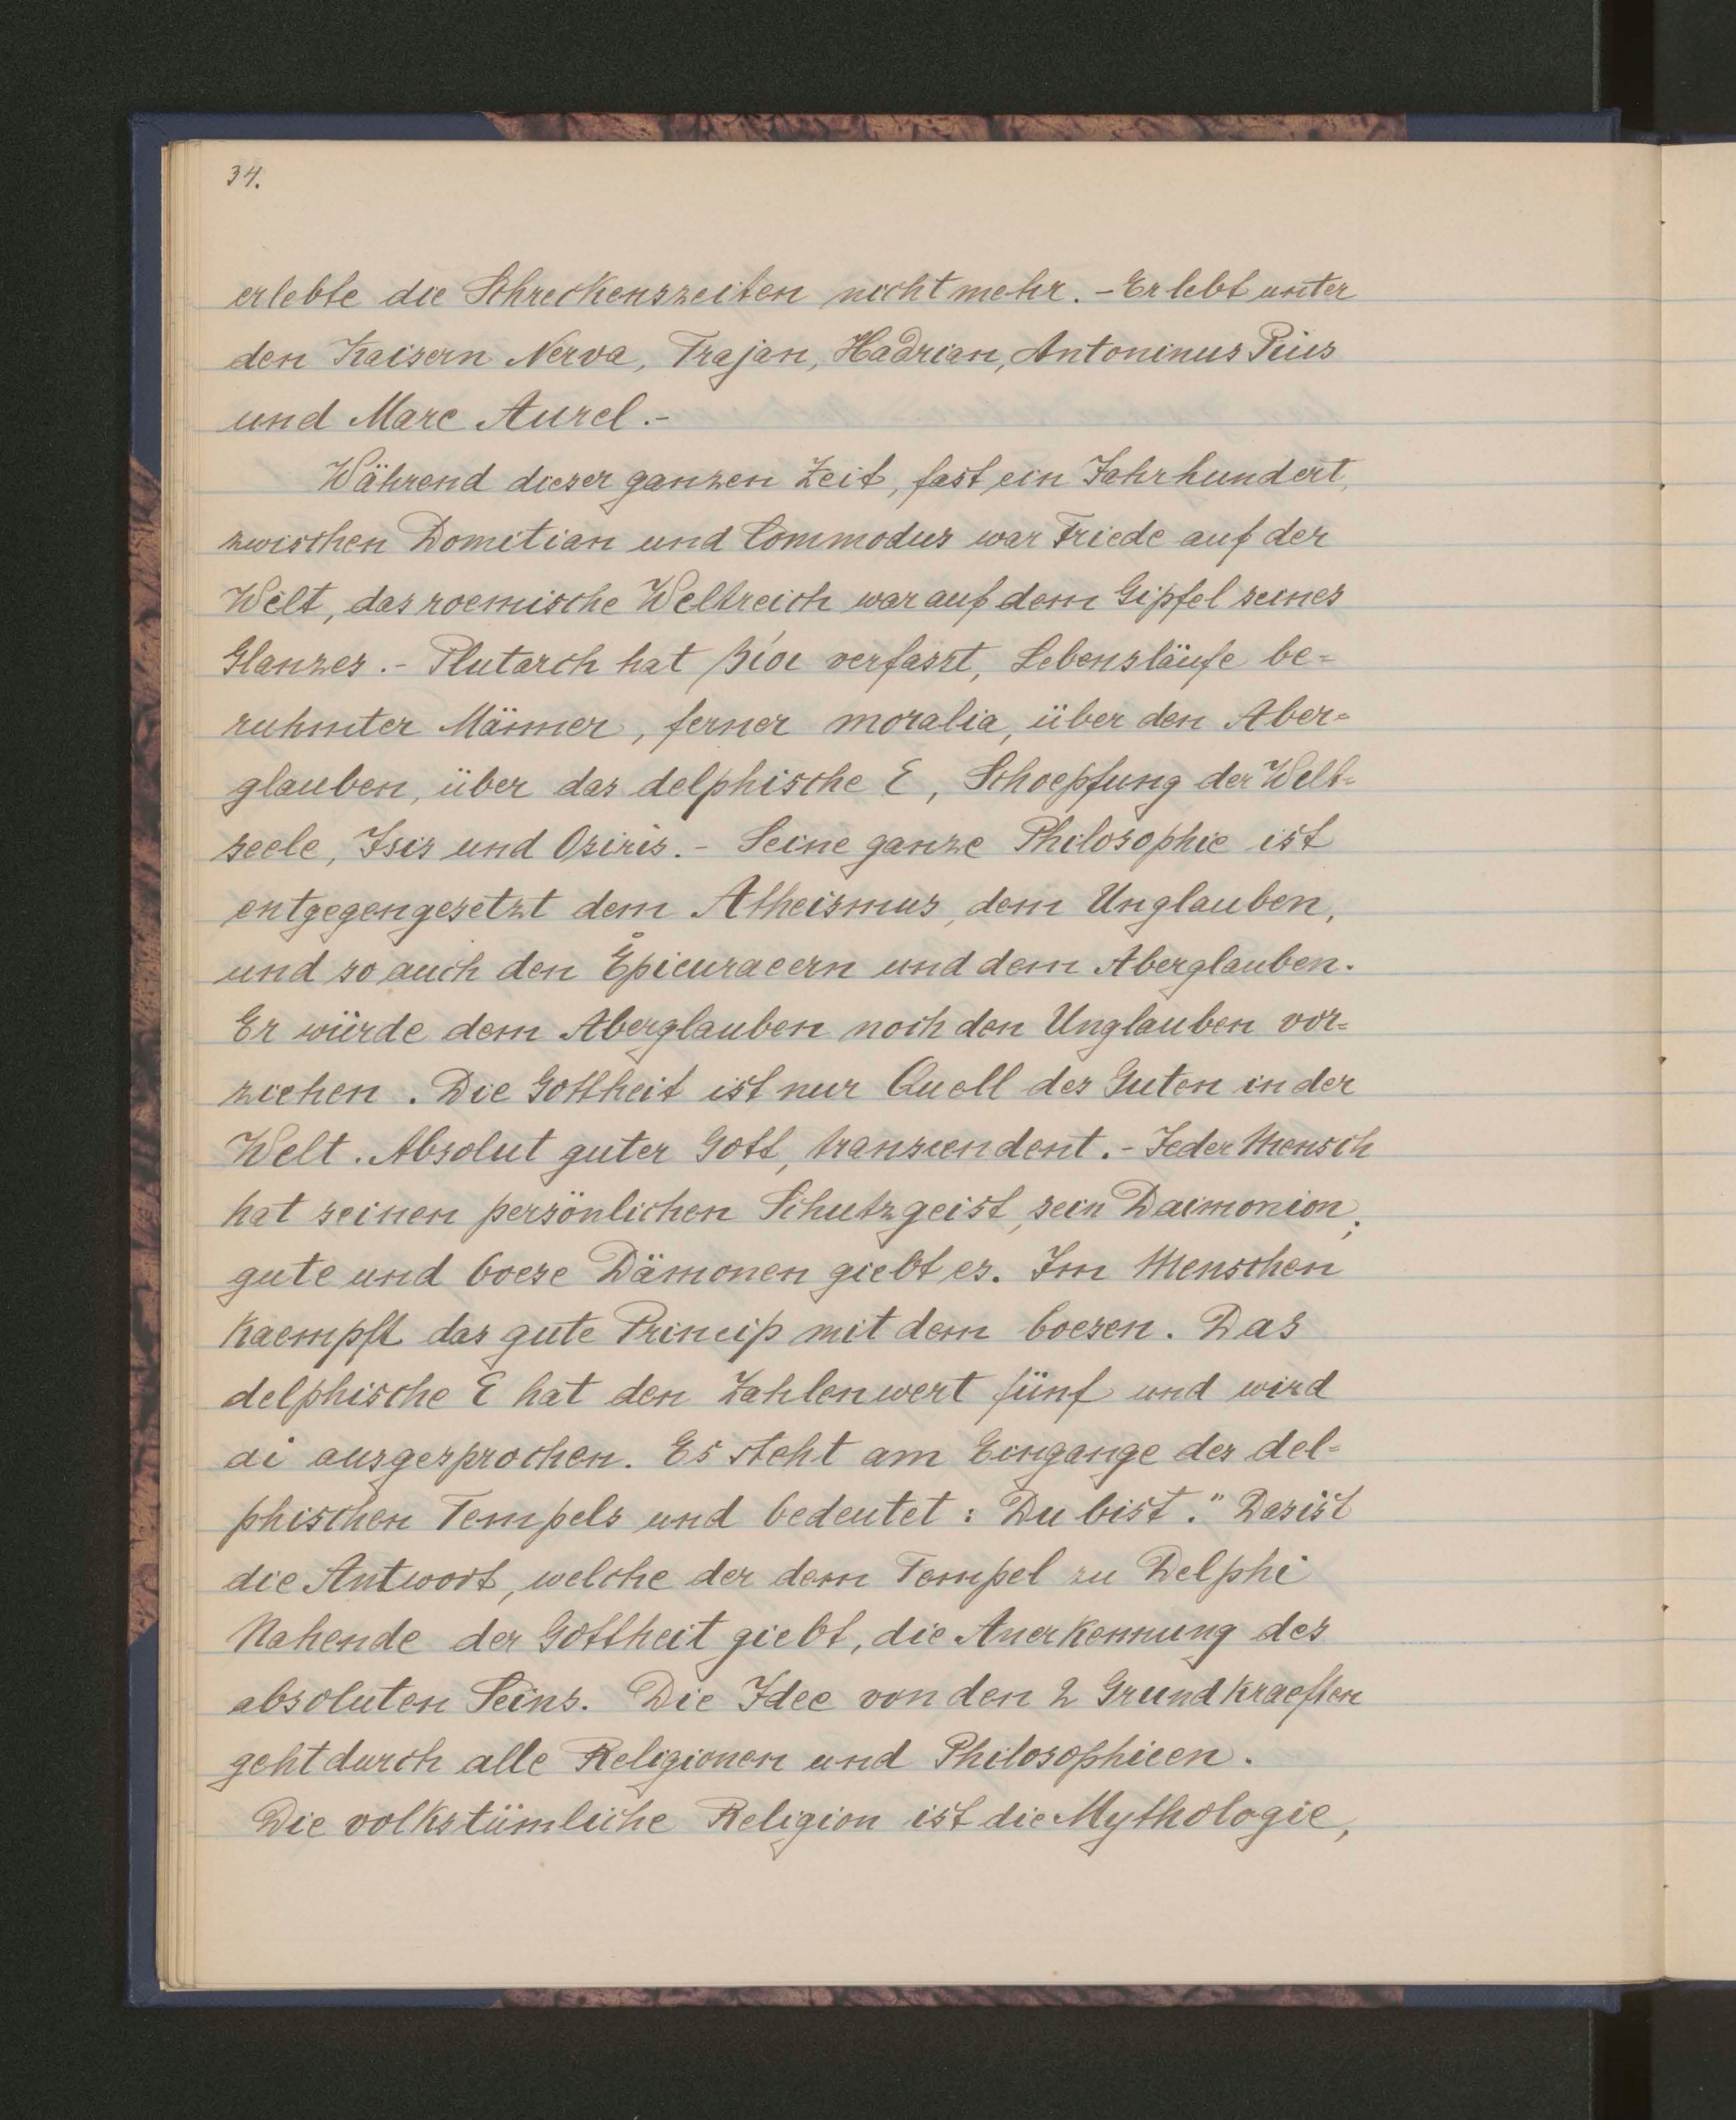 34.
erlebte die Schreckenszeiten nicht mehr. - Er lebt unter
den Kaisern Nerva, Trajan, Hadrian, Antoninus Pius
und Marc Aurel. -
Während dieser ganzen Zeit, fast ein Jahrhundert,
zwischen Domitian und Commodus war Friede auf der
Welt, das roemische Weltreich war auf dem Gipfel seines
Glanzes. - Plutarch hat βίοι verfasst, Lebensläufe be=
ruhmter Männer, ferner moralia, über den Aber=
glauben, über das delphische E, Schoepfung der Welt=
seele, Isis und Osiris. - Seine ganze Philosophie ist
entgegengesetzt dem Atheismus, dem Unglauben,
und so auch den Epicuraeern und dem Aberglauben.
Er würde dem Aberglauben noch den Unglauben vor=
ziehen. Die Gottheit ist nur Quell des Guten in der
Welt. Absolut guter Gott, transcendent. - Jeder Mensch
hat seinen persönlichen Schutzgeist, sein Daimonion;
gute und boese Dämonen giebt es. Im Menschen
kaempft das gute Princip mit dem boesen. Das
delphische E hat den Zahlenwert fünf und wird
ai ausgesprochen. Es steht am Eingange des del=
phischen Tempels und bedeutet: Du bist." Das ist
die Antwort, welche der dem Tempel zu Delphi
Nahende der Gottheit giebt, die Anerkennung des
absoluten Seins. Die Idee von den 2 Grundkraeften
geht durch alle Religionen und Philosophieen.
Die volkstümliche Religion ist die Mythologie,